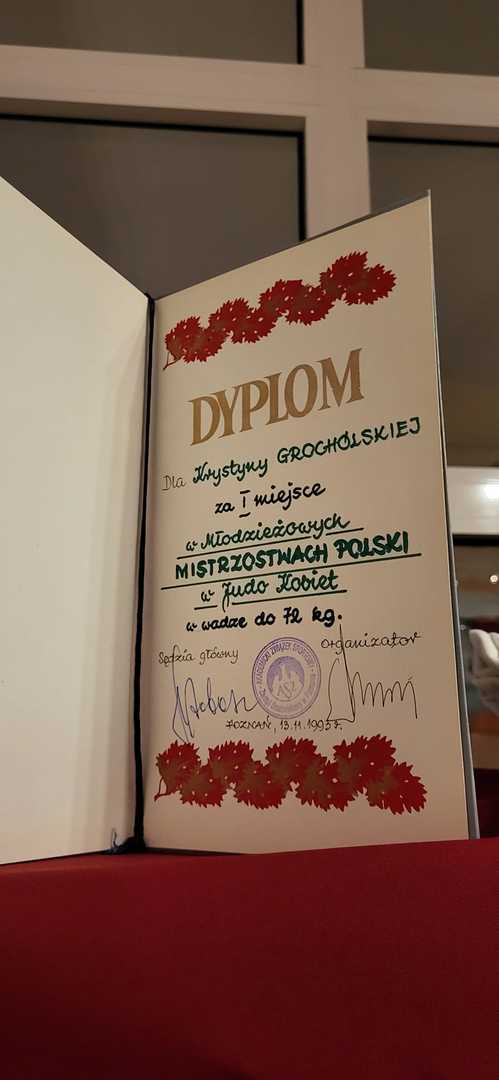 DYPLOM
Dla Krystyny GROCHÓLSKIEJ
za I miejsce
w Młodzieżowych
MISTRZOSTWACH POLSKI
w Judo Kobiet
w wadze do 72 kg.
Sędzia główny
organizator
AKADEMICKI ZWIĄZEK SPORTOWY
AZS
POZNAŃ, 13.11.1993 r.